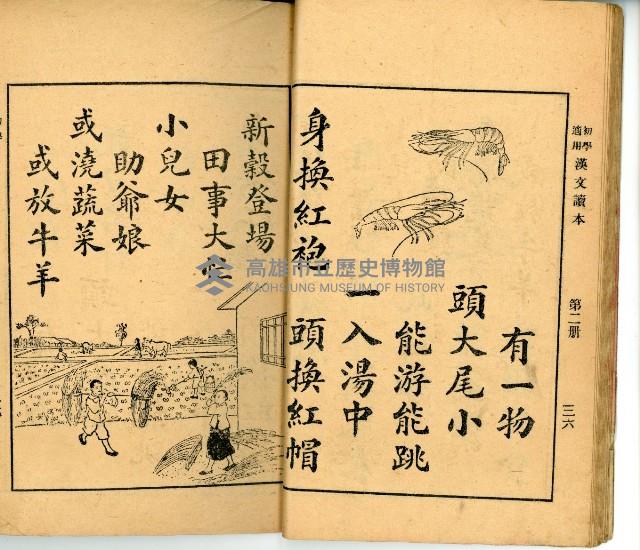 初學適用
漢文讀本
第二册
三六
有一物
頭大尾小
能游能跳
一入湯中
身換紅袍 頭換紅帽
新穀登場
田事大
小兒女
助爺娘
或澆蔬菜
或放牛羊
高雄市立歷史博物館
KAOHSIUNG MUSEUM OF HISTORY